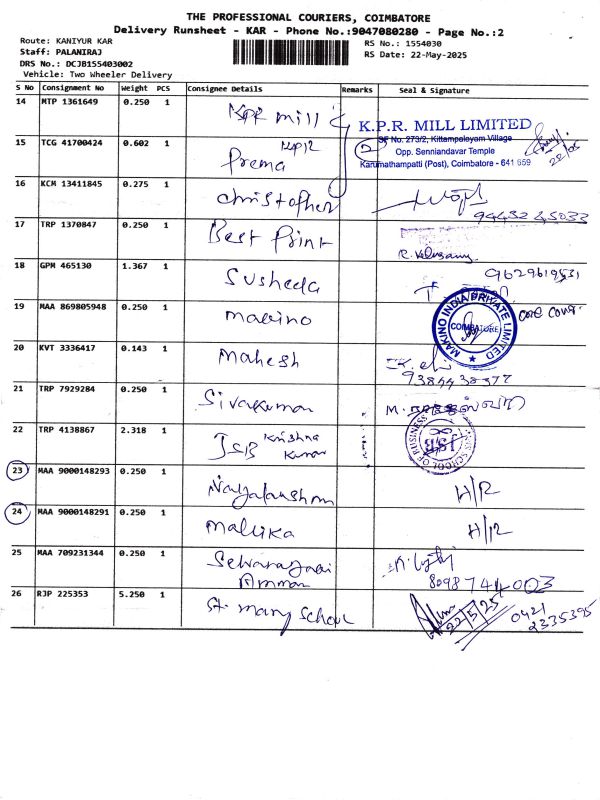 THE PROFESSIONAL COURIERS, COIMBATORE
Delivery Runsheet - KAR - Phone No.:9047080280 - Page No.:2
Route: KANIYUR KAR
Staff: PALANIRAJ
DRS No.: DCJB155403002
Vehicle: Two Wheeler Delivery
RS No.: 1554030
RS Date: 22-May-2025
S No Consignment No Weight PCS Consignee Details Remarks Seal & Signature
14 MTP 1361649 0.250 1 KPR mill
K.P.R. MILL LIMITED
SF No. 273/2, Kittampalayam Village
Opp. Senniandavar Temple
Karumathampatti (Post), Coimbatore - 641 659
15 TCG 41700424 0.602 1 Prema
16 KCM 13411845 0.275 1 Christopher
94432 45033
17 TRP 1370847 0.250 1 Best Print
18 GPM 465130 1.367 1 Susheela
9629619531
19 MAA 869805948 0.250 1 Makino
MAKINO INDIA PRIVATE LIMITED
COIMBATORE
20 KVT 3336417 0.143 1 Mahesh
21 TRP 7929284 0.250 1 Sivakumar
22 TRP 4138867 2.318 1 JSB Krishna Kumar
JSB
SCHOOL OF BUSINESS
23 MAA 9000148293 0.250 1 H/R
24 MAA 9000148291 0.250 1 Mallika H/R
25 MAA 709231344 0.250 1 Amman
8098744003
26 RJP 225353 5.250 1 St. mary School
22/5/25
0421
2335395